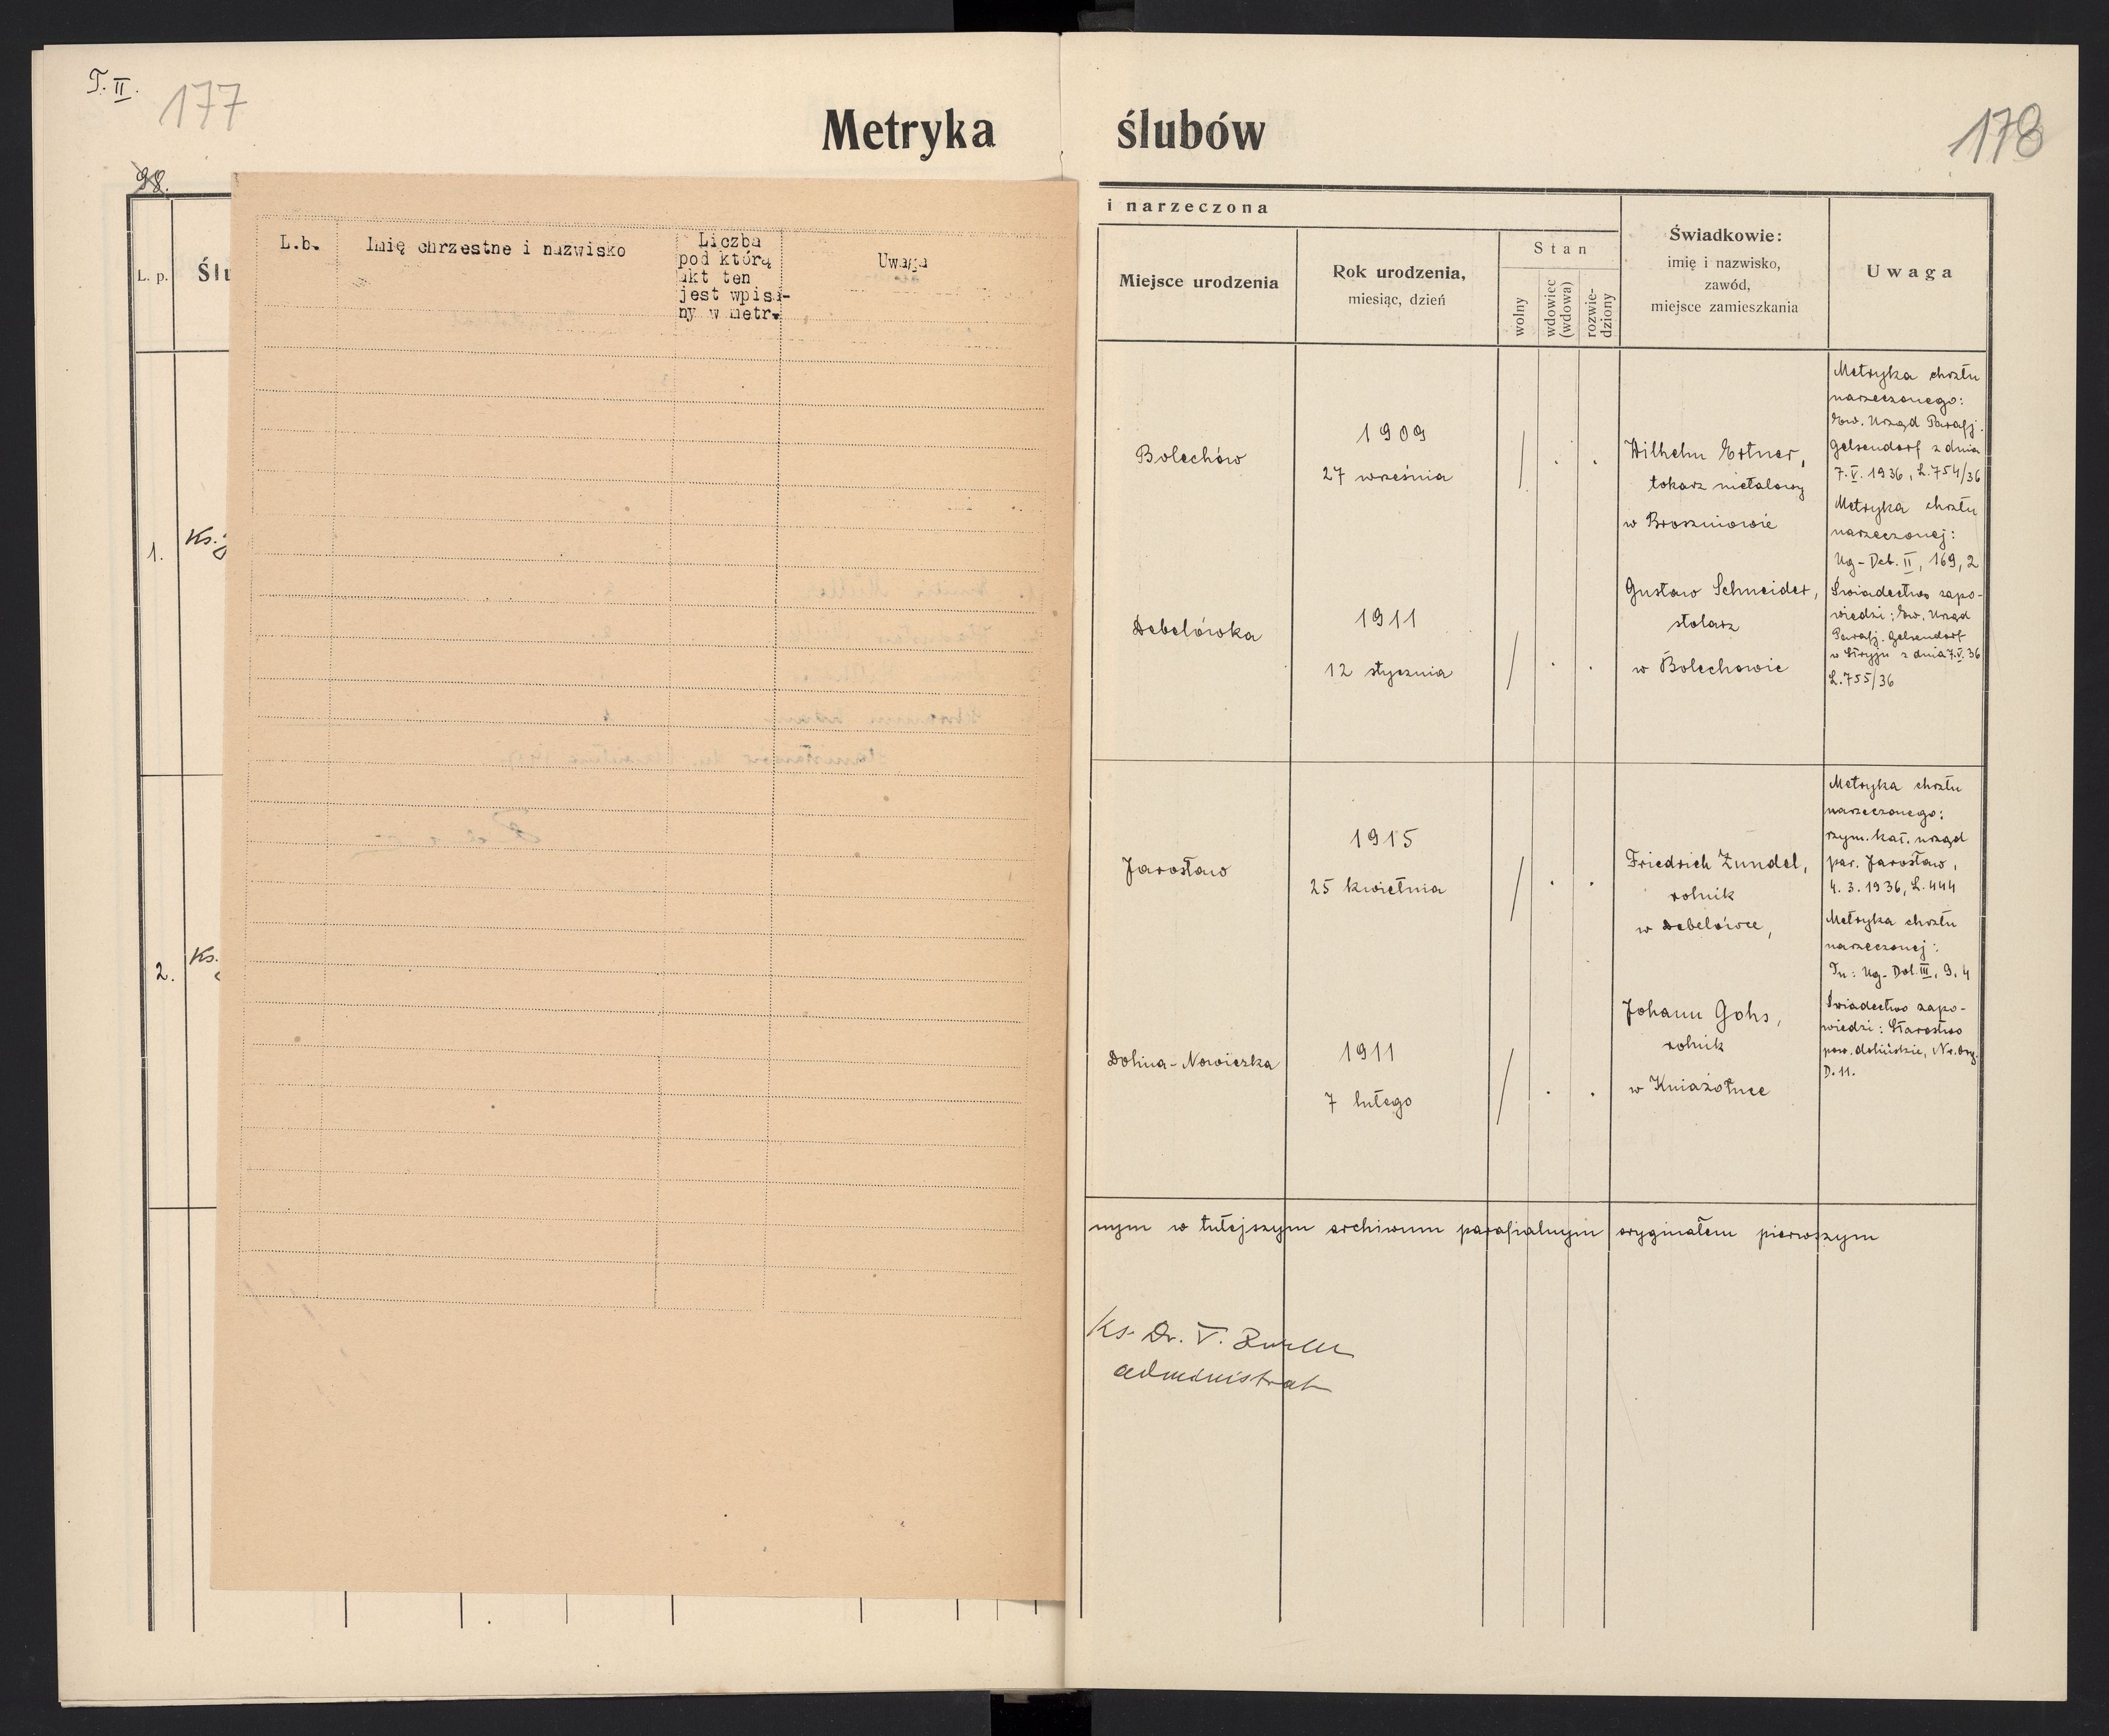 T. II.
177
Metryka ślubów
178
98.
L. p.
Ślu
1.
Ks. J
2.
Ks.
L.b.
Imię chrzestne i nazwisko
Liczba
pod którą
akt ten
jest wpisa-
ny w metr.
Uwaga
i narzeczona
Miejsce urodzenia
Rok urodzenia,
miesiąc, dzień
Stan
wolny
wdowiec
(wdowa)
rozwie-
dziony
Świadkowie:
imię i nazwisko,
zawód,
miejsce zamieszkania
Uwaga
Bolechów
1909
27 września
Wilhelm Ertner,
tokarz metalowy
w Broszniowie
Metryka chrztu
narzeczonego:
Ew. Urząd Parafj.
Gelsendorf z dnia
7. V. 1936, L. 754/36
Metryka chrztu
narzeczonej:
Ug-Deb. II, 169, 2
Debelówka
1911
12 stycznia
Gustaw Schneider,
stolarz
w Bolechowie
Świadectwo zapo-
wiedzi: Ew. Urząd
Parafj. Gelsendorf
w Stryju z dnia 7. V. 36
L. 755/36
Jarosław
1915
25 kwietnia
Friedrich Zundel,
rolnik
w Debelówce,
Metryka chrztu
narzeczonego:
rzym. kat. urząd
par. Jarosław,
4. 3. 1936, L. 444
Metryka chrztu
narzeczonej:
Tu: Ug-Dol. III, 9. 4
Dolina-Nowiczka
1911
7 lutego
Johann Gohs,
rolnik
w Kniaźołuce
Świadectwo zapo-
wiedzi: Starostwo
pow. dolińskie, Nr. org.
D. 11.
nym w tutejszym archiwum parafialnym oryginałem pierwszym
Ks. Dr. V.
administrat